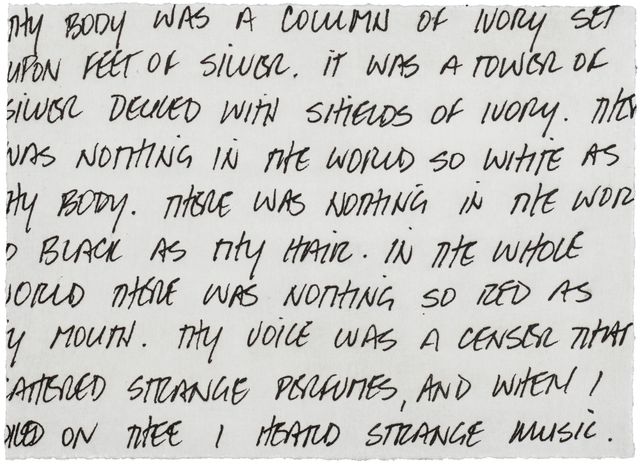 THY BODY WAS A COLUMN OF IVORY SET
UPON FEET OF SILVER. IT WAS A TOWER OF
SILVER DECKED WITH SHIELDS OF IVORY. THER
WAS NOTHING IN THE WORLD SO WHITE AS
THY BODY. THERE WAS NOTHING IN THE WOR
O BLACK AS THY HAIR. IN THE WHOLE
WORLD THERE WAS NOTHING SO RED AS
Y MOUTH. THY VOICE WAS A CENSER THAT
CATTERED STRANGE PERFUMES, AND WHEN I
OKED ON THEE I HEARD STRANGE MUSIC.